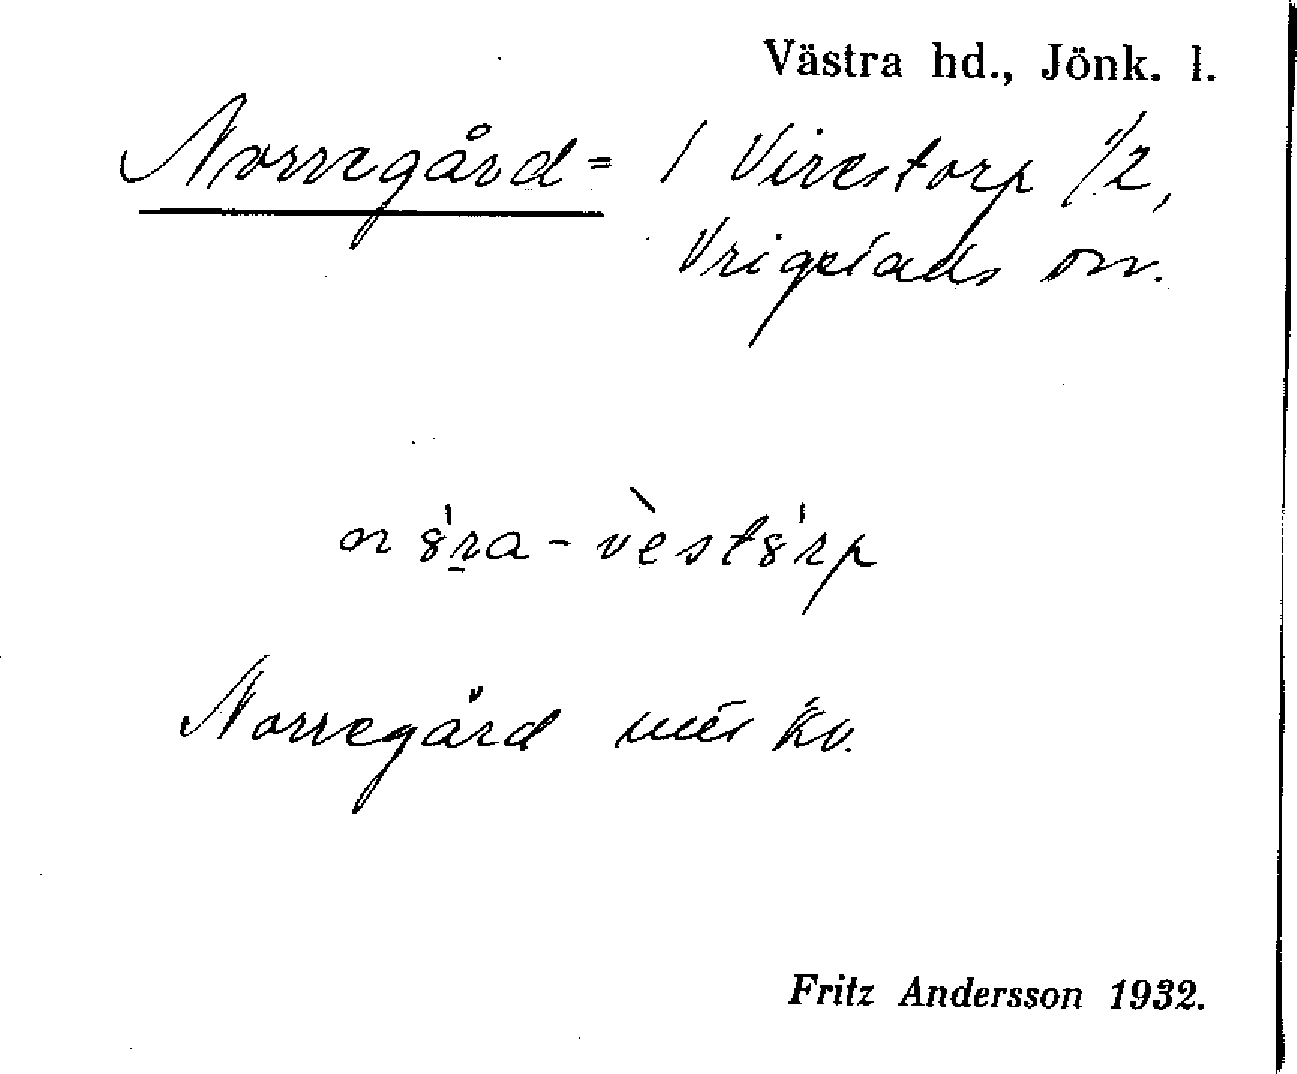 Västra hd., Jönk. l.
Norregård = / Virestorp 1/2,
Vrigstads sn.
n8́ra-vèst8́rp
Norregård
Fritz Andersson 1932.